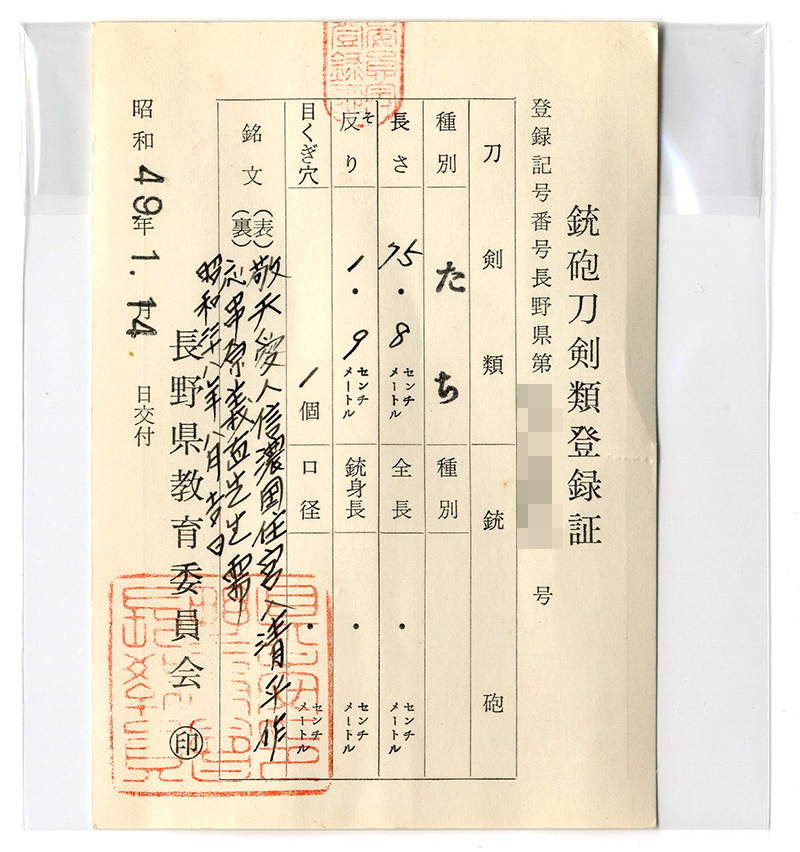 銃砲刀剣類登録証
登録記号番号長野県第 号
刀剣類 銃砲
種別 たち 種別
長さ 75.8 センチメートル 全長 ・ センチメートル
反り そ 1.9 センチメートル 銃身長 ・ センチメートル
目くぎ穴 1個 口径 ・ センチメートル
銘文 (表) 敬天愛人信濃国住宮入清平作
(裏) 応串原義直先生需
昭和三十八年八月吉日
長野県教育委員会 印
昭和49年1.月14日交付